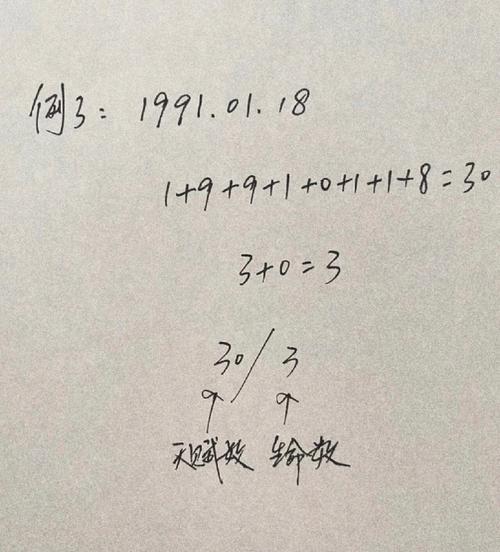 例3: 1991.01.18
1+9+9+1+0+1+1+8=30
3+0=3
30/3
天赋数 生命数